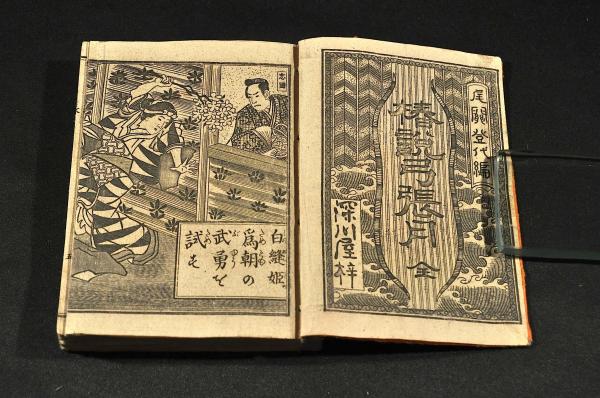 尾關登代編
椿說弓張月 全
深川屋梓
白縫姫
爲朝の
武勇を
試す